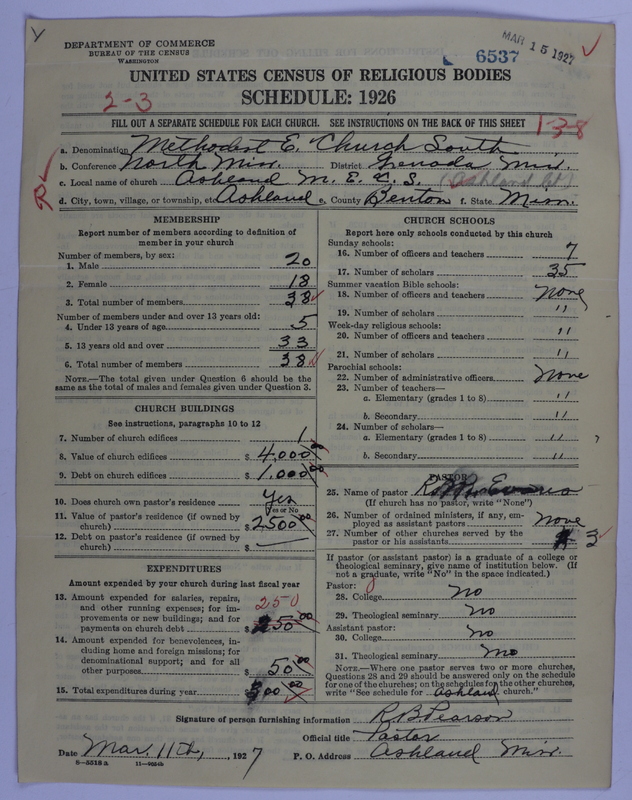 DEPARTMENT OF COMMERCE
BUREAU OF THE CENSUS
WASHINGTON
MAR 15 1927
6537
UNITED STATES CENSUS OF RELIGIOUS BODIES
SCHEDULE: 1926
2-3
FILL OUT A SEPARATE SCHEDULE FOR EACH CHURCH. SEE INSTRUCTIONS ON THE BACK OF THIS SHEET
1-3-8
a. Denomination Methodest E. Church South
b. Conference North Miss. District Grenada Miss.
c. Local name of church Ashland M. E. C. S. (Ashland
d. City, town, village, or township, etc Ashland e. County Benton f. State Miss.
MEMBERSHIP
Report number of members according to definition of
member in your church
Number of members, by sex:
1. Male 20
2. Female 18
3. Total number of members 38
Number of members under and over 13 years old:
4. Under 13 years of age 5
5. 13 years old and over 33
6. Total number of members 38
NOTE.—The total given under Question 6 should be the
same as the total of males and females given under Question 3.
CHURCH BUILDINGS
See instructions, paragraphs 10 to 12
7. Number of church edifices 1
8. Value of church edifices $ 4,000 00
9. Debt on church edifices $ 1,000 00
10. Does church own pastor's residence Yes
Yes or No
11. Value of pastor's residence (if owned by
church) $ 2500 00
12. Debt on pastor's residence (if owned by
church) $ —
EXPENDITURES
Amount expended by your church during last fiscal year
13. Amount expended for salaries, repairs,
and other running expenses; for im-
provements or new buildings; and for
payments on church debt $ 250 00
250
14. Amount expended for benevolences, in-
cluding home and foreign missions; for
denominational support; and for all
other purposes $ 50 00
15. Total expenditures during year $ 300 00
CHURCH SCHOOLS
Report here only schools conducted by this church
Sunday schools:
16. Number of officers and teachers 7
17. Number of scholars 35
Summer vacation Bible schools:
18. Number of officers and teachers none
19. Number of scholars "
Week-day religious schools:
20. Number of officers and teachers "
21. Number of scholars "
Parochial schools:
22. Number of administrative officers none
23. Number of teachers—
a. Elementary (grades 1 to 8) "
b. Secondary "
24. Number of scholars—
a. Elementary (grades 1 to 8) "
b. Secondary "
PASTOR
25. Name of pastor Evans
(If church has no pastor, write "None")
26. Number of ordained ministers, if any, em-
ployed as assistant pastors none
27. Number of other churches served by the
pastor or his assistants 3
If pastor (or assistant pastor) is a graduate of a college or
theological seminary, give name of institution below. (If
not a graduate, write "No" in the space indicated.)
Pastor:
28. College No
29. Theological seminary No
Assistant pastor:
30. College No
31. Theological seminary No
NOTE.—Where one pastor serves two or more churches,
Questions 28 and 29 should be answered only on the schedule
for one of the churches; on the schedules for the other churches,
write "See schedule for Ashland church."
Signature of person furnishing information R. B. Pearson
Official title Pastor
Date Mar. 11th, 1927 P. O. Address Ashland Miss.
8—5518 a